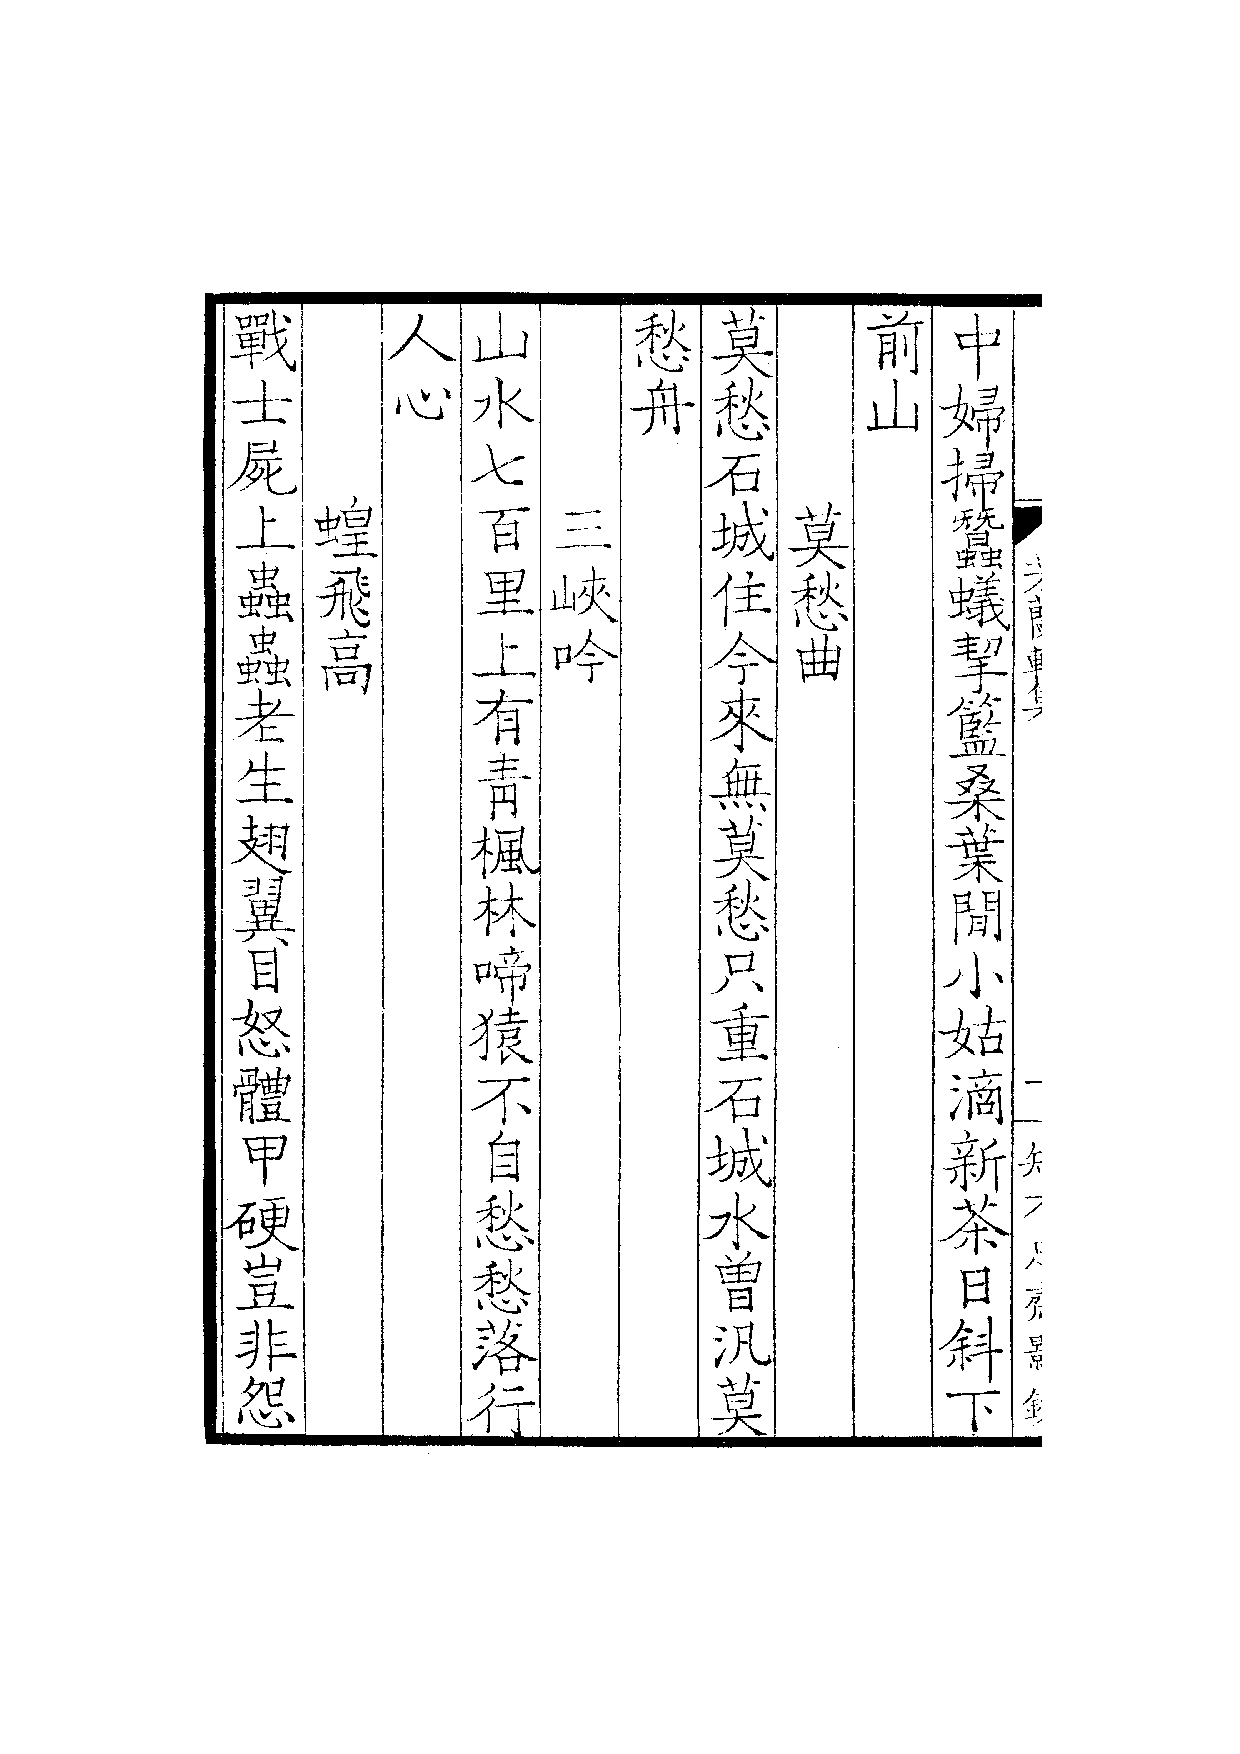 芳蘭軒集
知不足齋影鈔
中婦掃蠶蟻挈籃桑葉閒小姑滴新茶日斜下
前山
莫愁曲
莫愁石城住今來無莫愁只重石城水曾汎莫
愁舟
三峽吟
山水七百里上有青楓林啼猿不自愁愁落行
人心
蝗飛高
戰士屍上蟲蟲老生翅翼目怒體甲硬豈非怨